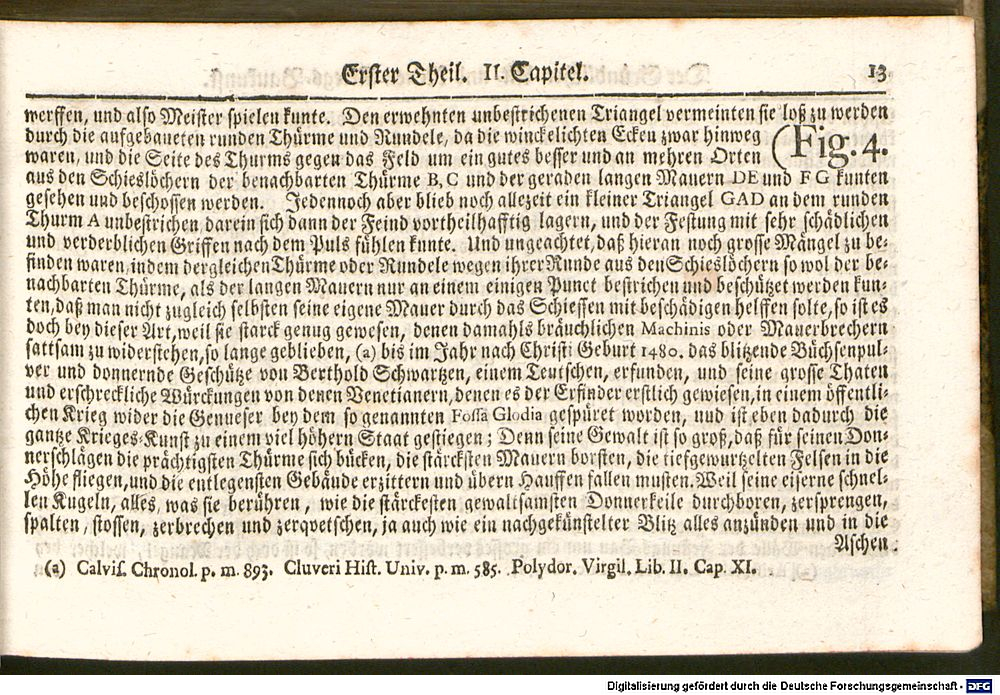 Erster Theil. II. Capitel. 13
werffen, und also Meister spielen kunte. Den erwehnten unbestrichenen Triangel vermeinten sie loß zu werden
durch die aufgebaueten runden Thürme und Rundele, da die winckelichten Ecken zwar hinweg
waren, und die Seite des Thurms gegen das Feld um ein gutes besser und an mehren Orten (Fig. 4.
aus den Schieslöchern der benachbarten Thürme B, C und der geraden langen Mauern DE und FG kunten
gesehen und beschossen werden. Jedennoch aber blieb noch allezeit ein kleiner Triangel GAD an dem runden
Thurm A unbestrichen darein sich dann der Feind vortheilhafftig lagern, und der Festung mit sehr schädlichen
und verderblichen Griffen nach dem Puls fühlen kunte. Und ungeachtet, daß hieran noch grosse Mängel zu be-
finden waren, indem dergleichen Thürme oder Rundele wegen ihrer Runde aus den Schieslöchern so wol der be-
nachbarten Thürme, als der langen Mauern nur an einem einigen Punct bestrichen und beschützet werden kun-
ten, daß man nicht zugleich selbsten seine eigene Mauer durch das Schiessen mit beschädigen helffen solte, so ist es
doch bey dieser Art, weil sie starck genug gewesen, denen damahls bräuchlichen Machinis oder Mauerbrechern
sattsam zu widerstehen, so lange geblieben, (a) bis im Jahr nach Christi Geburt 1480. das blitzende Büchsenpul-
ver und donnernde Geschütze von Berthold Schwartzen, einem Teutschen, erfunden, und seine grosse Thaten
und erschreckliche Würckungen von denen Venetianern, denen es der Erfinder erstlich gewiesen, in einem öffentli-
chen Krieg wider die Genueser bey dem so genannten Fossâ Glodia gespüret worden, und ist eben dadurch die
gantze Krieges-Kunst zu einem viel höhern Staat gestiegen; Denn seine Gewalt ist so groß, daß für seinen Don-
nerschlägen die prächtigsten Thürme sich bücken, die stärcksten Mauern borsten, die tiefgewurtzelten Felsen in die
Höhe fliegen, und die entlegensten Gebäude erzittern und übern Hauffen fallen musten. Weil seine eiserne schnel-
len Kugeln, alles, was sie berühren, wie die stärckesten gewaltsamsten Donnerkeile durchboren, zersprengen,
spalten, stossen, zerbrechen und zerqvetschen, ja auch wie ein nachgekünstelter Blitz alles anzünden und in die
Aschen
(a) Calvis. Chronol. p. m. 893. Cluveri Hist. Univ. p. m. 585. Polydor. Virgil. Lib. II. Cap. XI.
Digitalisierung gefördert durch die Deutsche Forschungsgemeinschaft - DFG